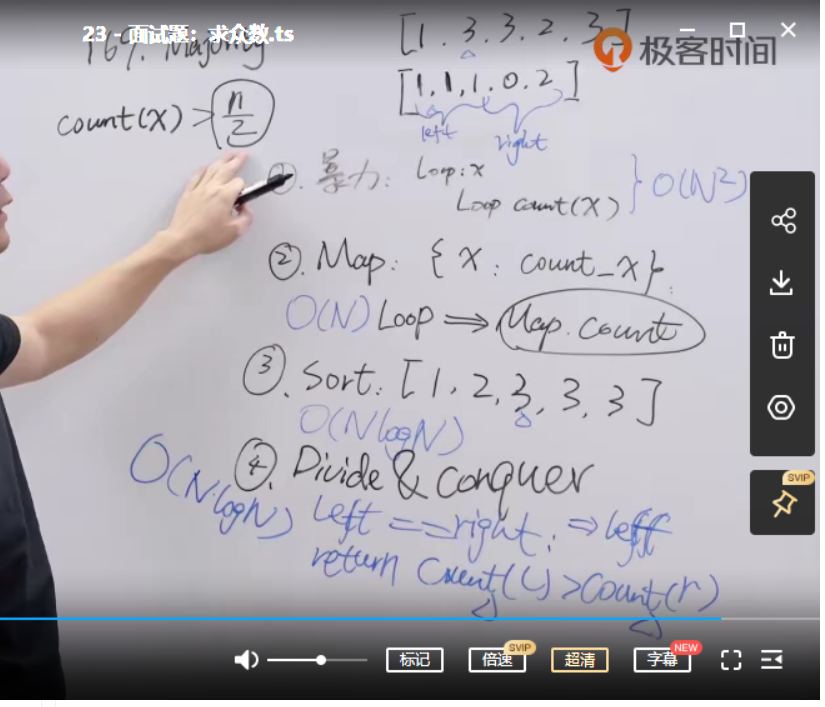 23 - 面试题：求众数.ts
169. Majority
极客时间
[1, 3, 3, 2, 3]
[1, 1, 1, 0, 2]
left right
count(x) > n/2
①. 暴力: Loop: x
Loop count(x) } O(N²)
②. Map: { x : count_x }.
O(N) Loop ⇒ Map.count
③. Sort: [1, 2, 3, 3, 3]
O(NlogN)
④. Divide & conquer
O(N·logN) left == right: ⇒ left
return Count(L) > Count(r)
SVIP
标记
倍速
SVIP
超清
字幕
NEW